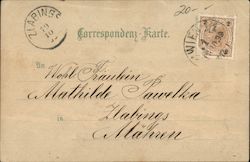 20-
ZLABINGS
WIEN
Correspondenz-Karte.
An
Wohl Fräulein
Mathilde Pawelka
in Zlabings
Mähren